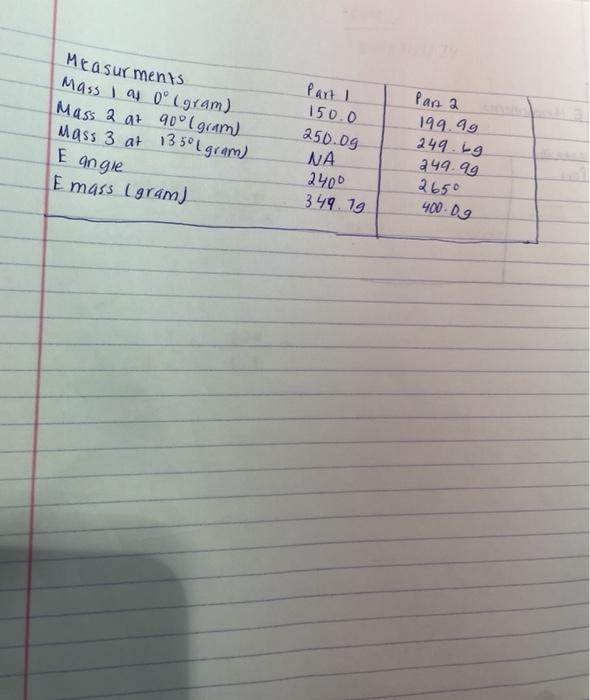 Measurments Part 1 Part 2
Mass 1 at 0° (gram) 150.0 199.9g
Mass 2 at 90° (gram) 250.0g 249.6g
Mass 3 at 135° (gram) NA 249.9g
E angle 240° 265°
E mass (gram) 349.7g 400.0g